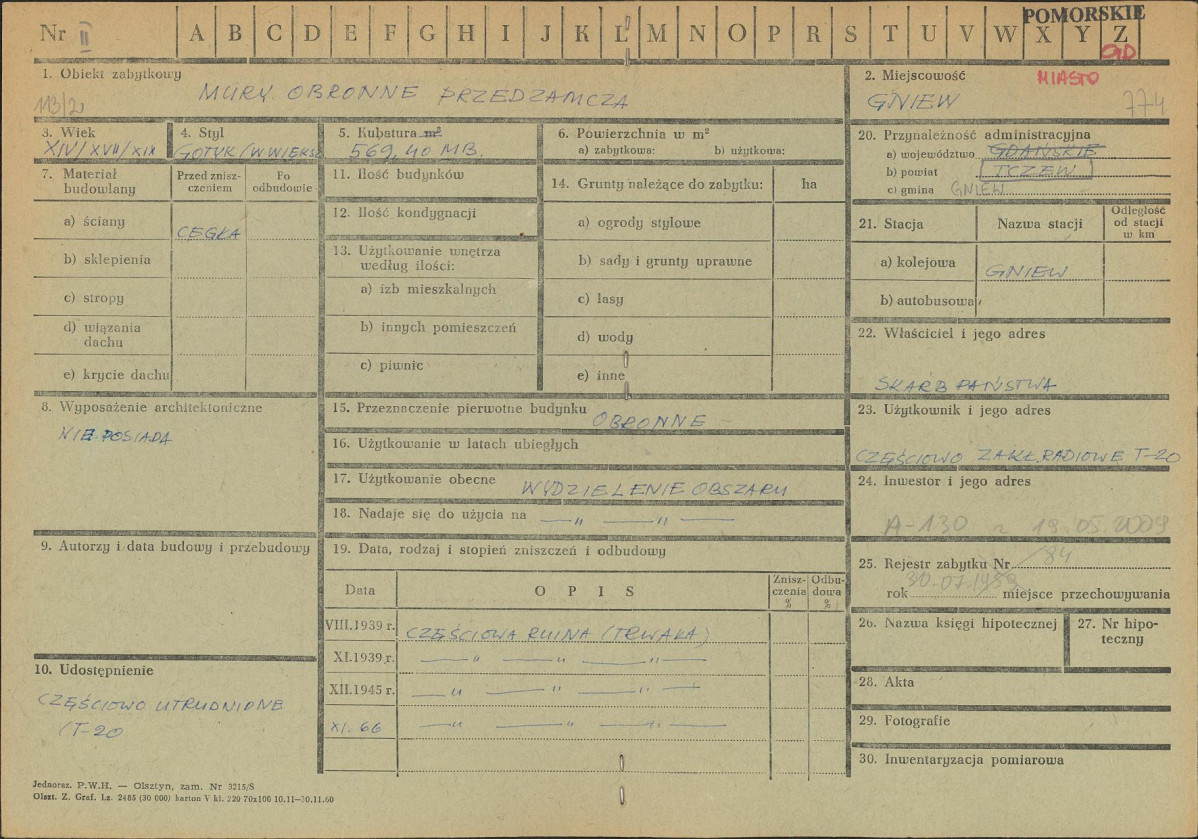 Nr II A B C D E F G H I J K L M N O P R S T U V W X Y Z
POMORSKIE
MIASTO
1. Obiekt zabytkowy
MURY OBRONNE PRZEDZAMCZA
113/2
2. Miejscowość
GNIEW
774
3. Wiek
XIV/XVII/XIX
4. Styl
GOTYK/W WIĘKSZ
5. Kubatura m³
569,40 MB.
6. Powierzchnia w m²
a) zabytkowa: b) użytkowa:
7. Materiał budowlany
Przed znisz-
czeniem
Po
odbudowie
a) ściany
CEGŁA
b) sklepienia
c) stropy
d) wiązania
dachu
e) krycie dachu
8. Wyposażenie architektoniczne
NIE POSIADA
9. Autorzy i data budowy i przebudowy
10. Udostępnienie
CZĘŚCIOWO UTRUDNIONE
(T-20
11. Ilość budynków
12. Ilość kondygnacji
13. Użytkowanie wnętrza
według ilości:
a) izb mieszkalnych
b) innych pomieszczeń
c) piwnic
14. Grunty należące do zabytku: ha
a) ogrody stylowe
b) sady i grunty uprawne
c) lasy
d) wody
e) inne
15. Przeznaczenie pierwotne budynku OBRONNE –
16. Użytkowanie w latach ubiegłych
17. Użytkowanie obecne WYDZIELENIE OBSZARU
18. Nadaje się do użycia na — " — " —
19. Data, rodzaj i stopień zniszczeń i odbudowy
Data OPIS
Znisz-
czenia
%
Odbu-
dowa
%
VIII.1939 r. CZĘŚCIOWA RUINA (TRWAŁA)
XI.1939 r. — " — " — " —
XII.1945 r. — " — " — " —
XI.66 — " — " — " —
20. Przynależność administracyjna
a) województwo GDAŃSKIE
b) powiat TCZEW
c) gmina GNIEW
21. Stacja Nazwa stacji
Odległość
od stacji
w km
a) kolejowa GNIEW
b) autobusowa
22. Właściciel i jego adres
SKARB PAŃSTWA
23. Użytkownik i jego adres
CZĘŚCIOWO ZAKŁ.RADIOWE T-20
24. Inwestor i jego adres
A-130 z 19.05.2009
25. Rejestr zabytku Nr 84
rok 30.07.1959 miejsce przechowywania
26. Nazwa księgi hipotecznej
27. Nr hipo-
teczny
28. Akta
29. Fotografie
30. Inwentaryzacja pomiarowa
Jednoraz. P.W.H. — Olsztyn, zam. Nr 3215/S
Olszt. Z. Graf. Lz. 2485 (30 000) karton V kl. 220 70x100 10.11—30.11.60